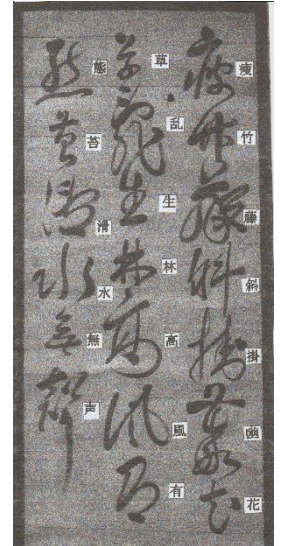 痩竹藤斜掛幽花
草乱生林高風有
態苔清水無声